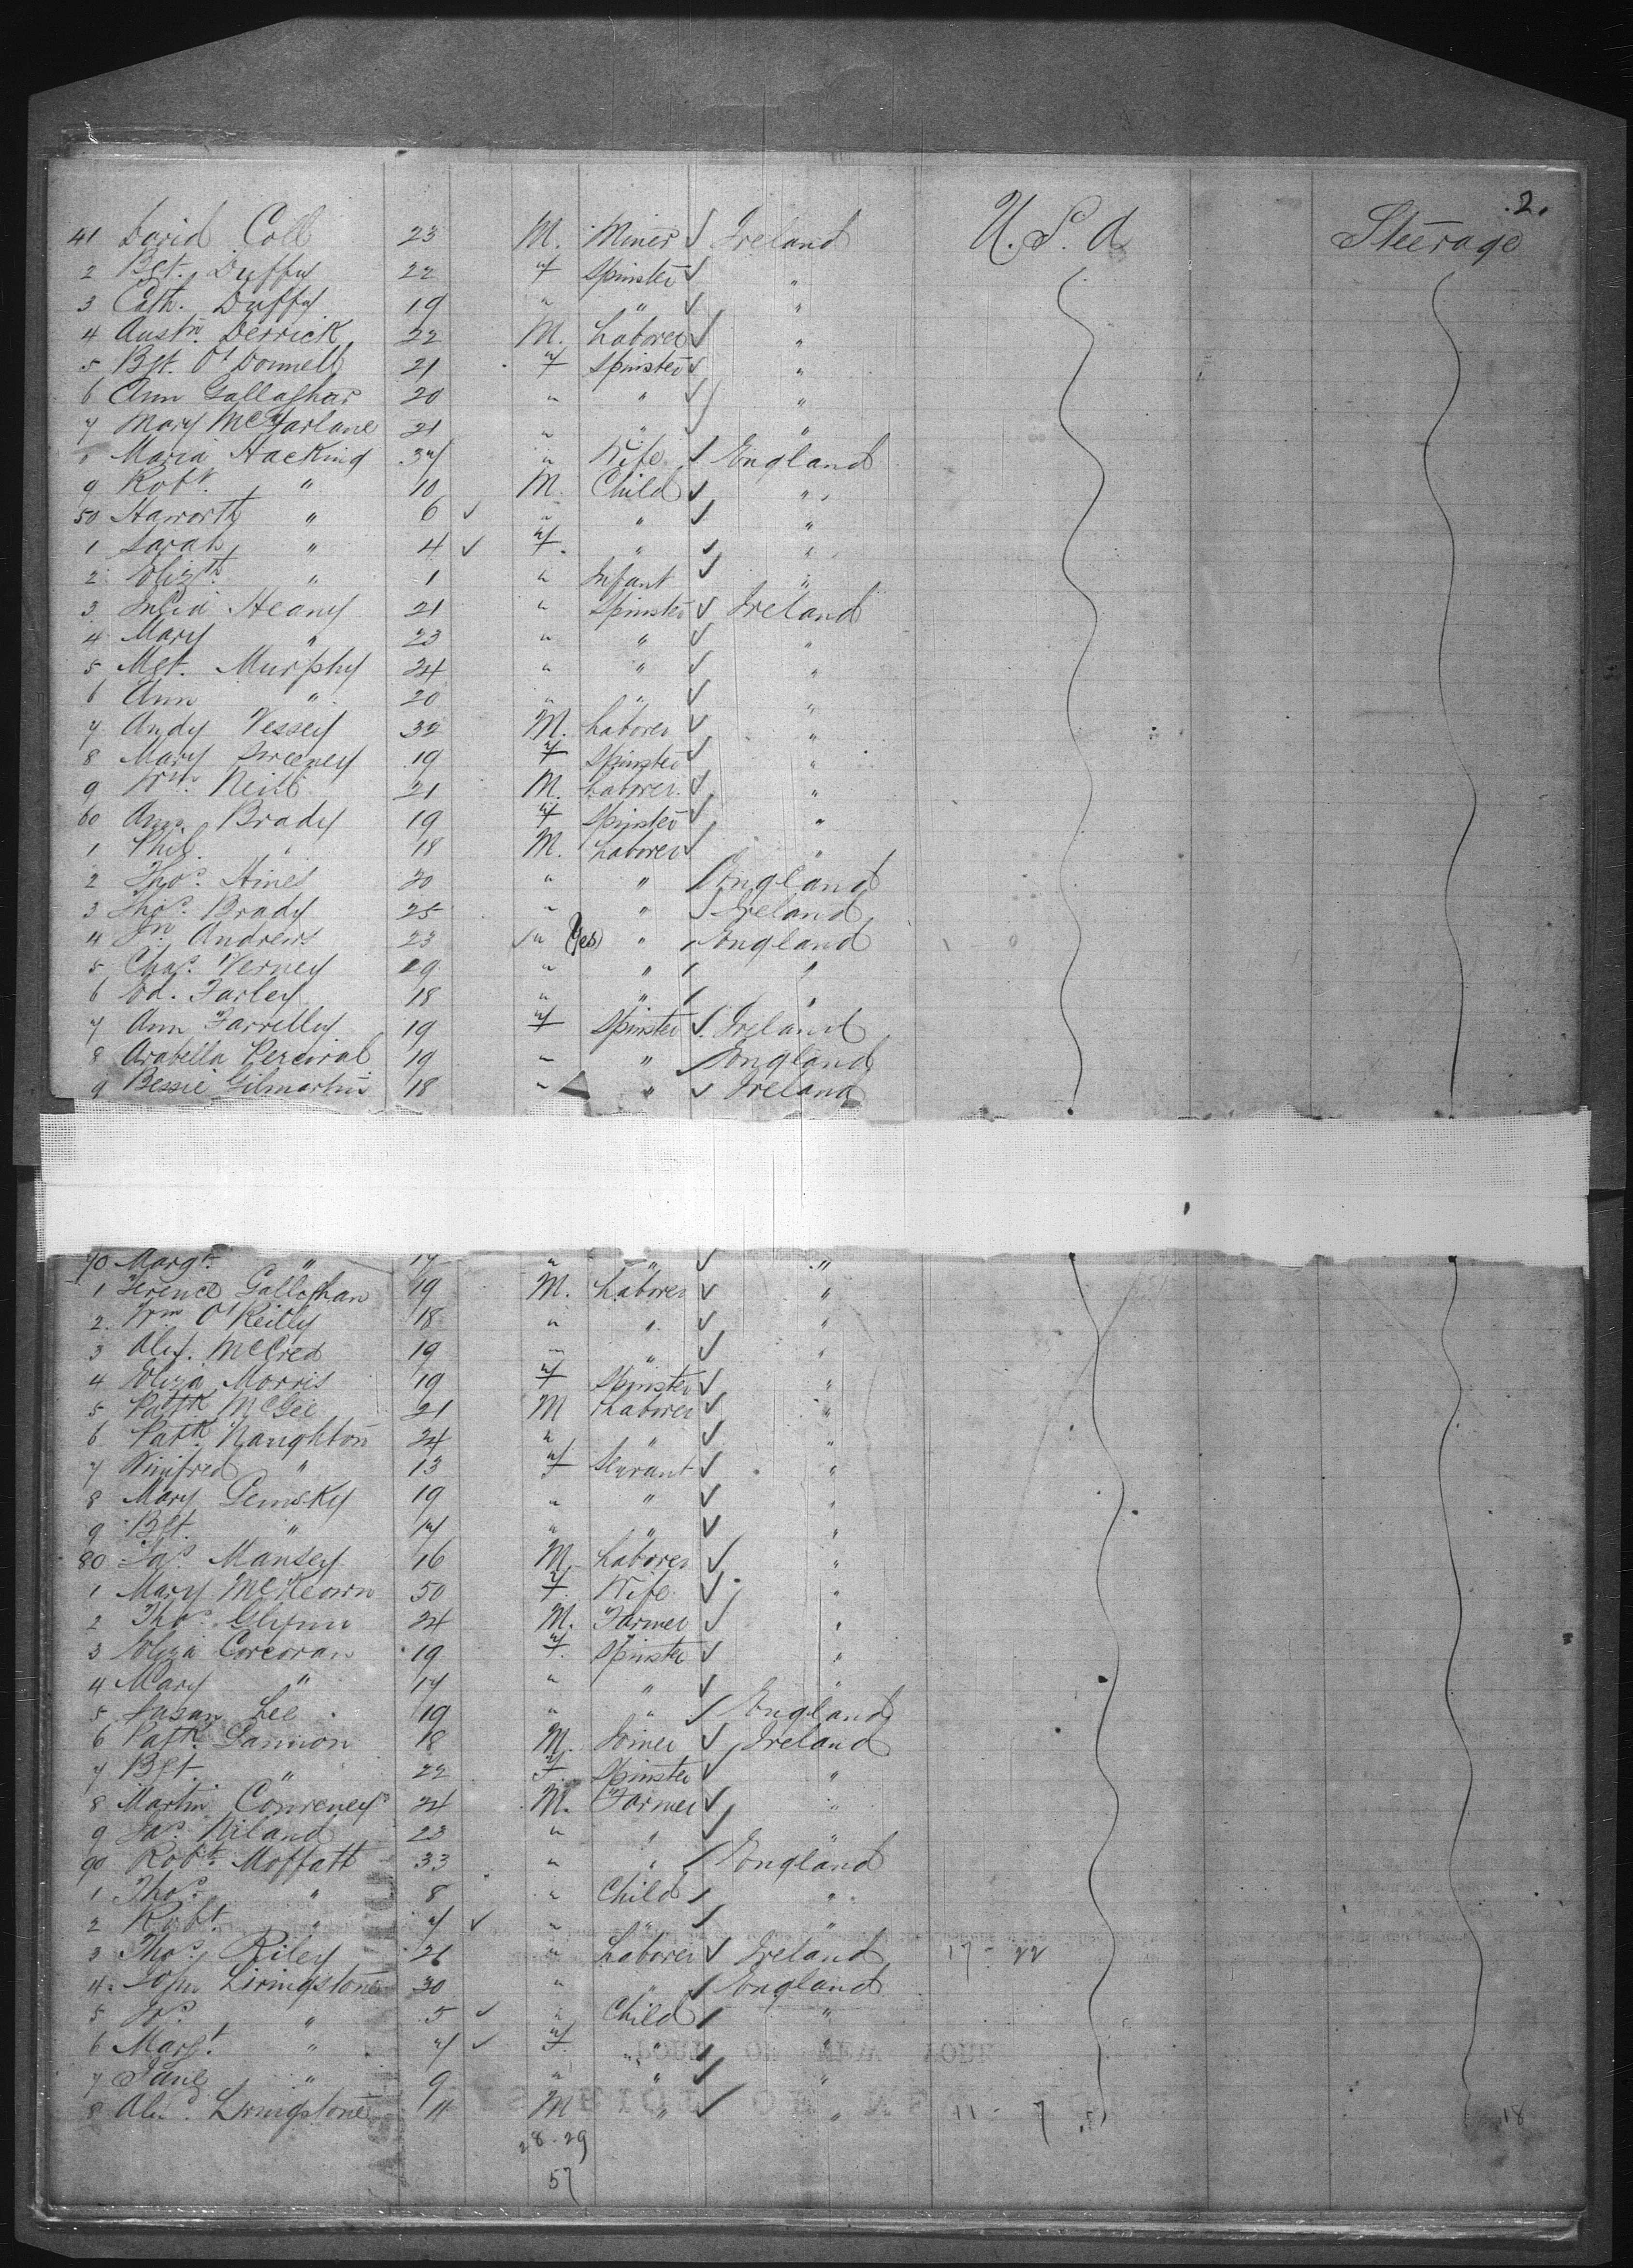 2.
41 David Coll 23 M. Miner ✓ Ireland U. S. A Steerage
2 Bgt. Duffy 22 f Spinster ✓ "
3 Cath. Duffy 19 " " ✓ "
4 Austn. Derrick 22 M. Laborer ✓ "
5 Bgt. O'Donnell 21 f Spinster ✓ "
6 Ann Gallagher 20 " " ✓ "
7 Mary McFarlane 21 " " ✓ "
Maria Hacking 37 " Wife ✓ England
9 Robt. " 10 M. Child ✓ "
50 Haworth " 6 ✓ " " ✓ "
1 Sarah " 4 ✓ f. " ✓ "
2 Elizth " 1 " Infant ✓ "
3 Julia Heany 21 " Spinster ✓ Ireland
4 Mary " 23 " " ✓ "
5 Mgt. Murphy 24 " " ✓ "
6 Ann " 20 " " ✓ "
7 Andy Vessey 32 M. Laborer ✓ "
8 Mary Sweeney 19 f Spinster ✓ "
9 Wm. Neill 21 M. Laborer ✓ "
60 Ann Brady 19 f Spinster ✓ "
1 Phil. " 18 M. Laborer ✓ "
2 Thos. Hines 20 " " ✓ England
3 Thos. Brady 25 " " ✓ Ireland
4 Jn. Andrews 23 ✓ " (Yes) " ✓ England
5 Chas. Verney 29 " " ✓ "
6 Ed. Farley 18 " " ✓ "
7 Ann Farrelly 19 f Spinster ✓ Ireland
8 Arabella Percival 19 " " ✓ England
9 Bessie Gilmartin 18 " " ✓ Ireland
70 Margt. " 17 " " ✓ "
1 Terence Gallaghan 19 M. Laborer ✓ "
2 Wm. O'Reilly 18 " " ✓ "
3 Alex. McCrea 19 " " ✓ "
4 Eliza Morris 19 f Spinster ✓ "
5 Patk McGee 21 M Laborer ✓ "
6 Patk. Naughton 24 " " ✓ "
7 Winifred " 13 f Servant ✓ "
8 Mary 19 " " ✓ "
9 Bgt. " 17 " " ✓ "
80 Jas. Mansey 16 M. Laborer ✓ "
1 Mary McKeown 50 f. Wife ✓ "
2 Thos. Glynn 24 M. Farmer ✓ "
3 Eliza Corcoran 19 f. Spinster ✓ "
4 Mary " 17 " " ✓ "
5 Susan Lee 19 " " ✓ England
6 Patk. Gannon 18 M. Joiner ✓ Ireland
7 Bgt. " 22 f. Spinster ✓ "
8 Martin 24 M. Farmer ✓ "
9 Jas. Niland 23 " " ✓ "
90 Robt. Moffatt 33 " " ✓ England
1 Thos. " 8 " Child ✓ "
2 Robt. " 7 ✓ " " ✓ "
3 Thos. Riley 26 " Laborer ✓ Ireland 17 - 22
4 John Livingstone 30 " " ✓ England
5 " 5 ✓ " Child ✓ "
6 Margt. " 7 ✓ f. " ✓ "
7 Jane " 9 " " ✓ "
8 Alex. Livingstone 11 M " ✓ "
28 - 29
57